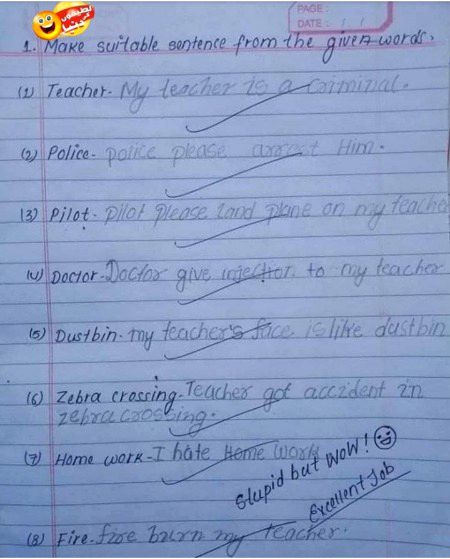 لطیفوں کی دنیا
PAGE:
DATE: / /
1. Make suitable sentence from the given words.
(1) Teacher- My teacher is a criminal.
(2) Police- police please arrest Him.
(3) Pilot- pilot please land plane on my teache
(4) Doctor- Doctor give injection to my teacher
(5) Dustbin- my teacher's face is like dustbin
(6) Zebra crossing- Teacher got accident in
zebra crossing.
(7) Home work- I hate Home work
Stupid but wow!
Excellent Job
(8) Fire- fire burn my teacher.